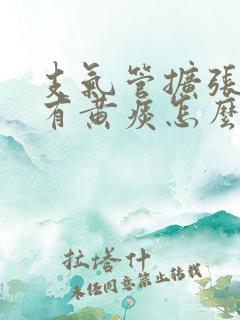 支氣管擴張
有黃痰怎麼
拉塔什
未經同意禁止轉載